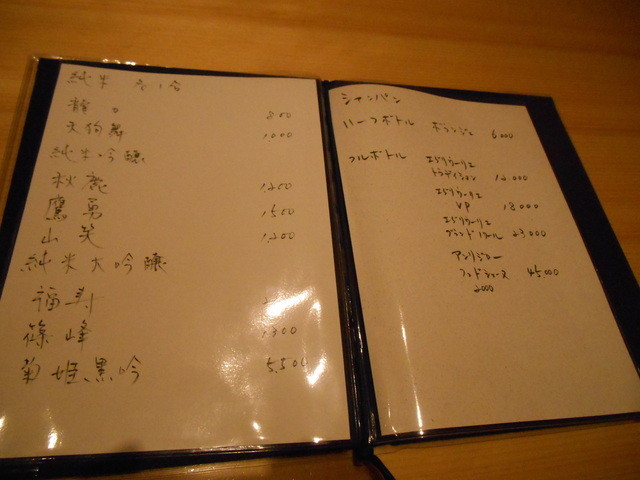 純米 各一合
800
天狗舞 1000
純米吟醸
秋鹿 1200
鷹勇 1500
山笑 1,200
純米大吟醸
福寿
篠峰 1300
菊姫黒吟 5,500
シャンパン
ハーフボトル ボランジェ 6,000
フルボトル エドシウーリエ
トラディション 12,000
エドシウーリエ
VP 18,000
エドシウーリエ
グランドクリュール 23,000
アンリジロー
フュドシェーヌ 45,000
2000